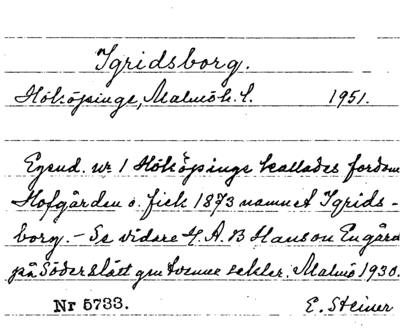 Igridsborg.
Hököpinge, Malmöh. l. 1951.
Egend. nr 1 Hököpinge kallades fordom
Hofgården o. fick 1873 namnet Igrids-
borg. - Se vidare H. A. B Hanson En gård
på Söderslätt gm tvenne sekler. Malmö 1930.
Nr 5733. E. Steiner